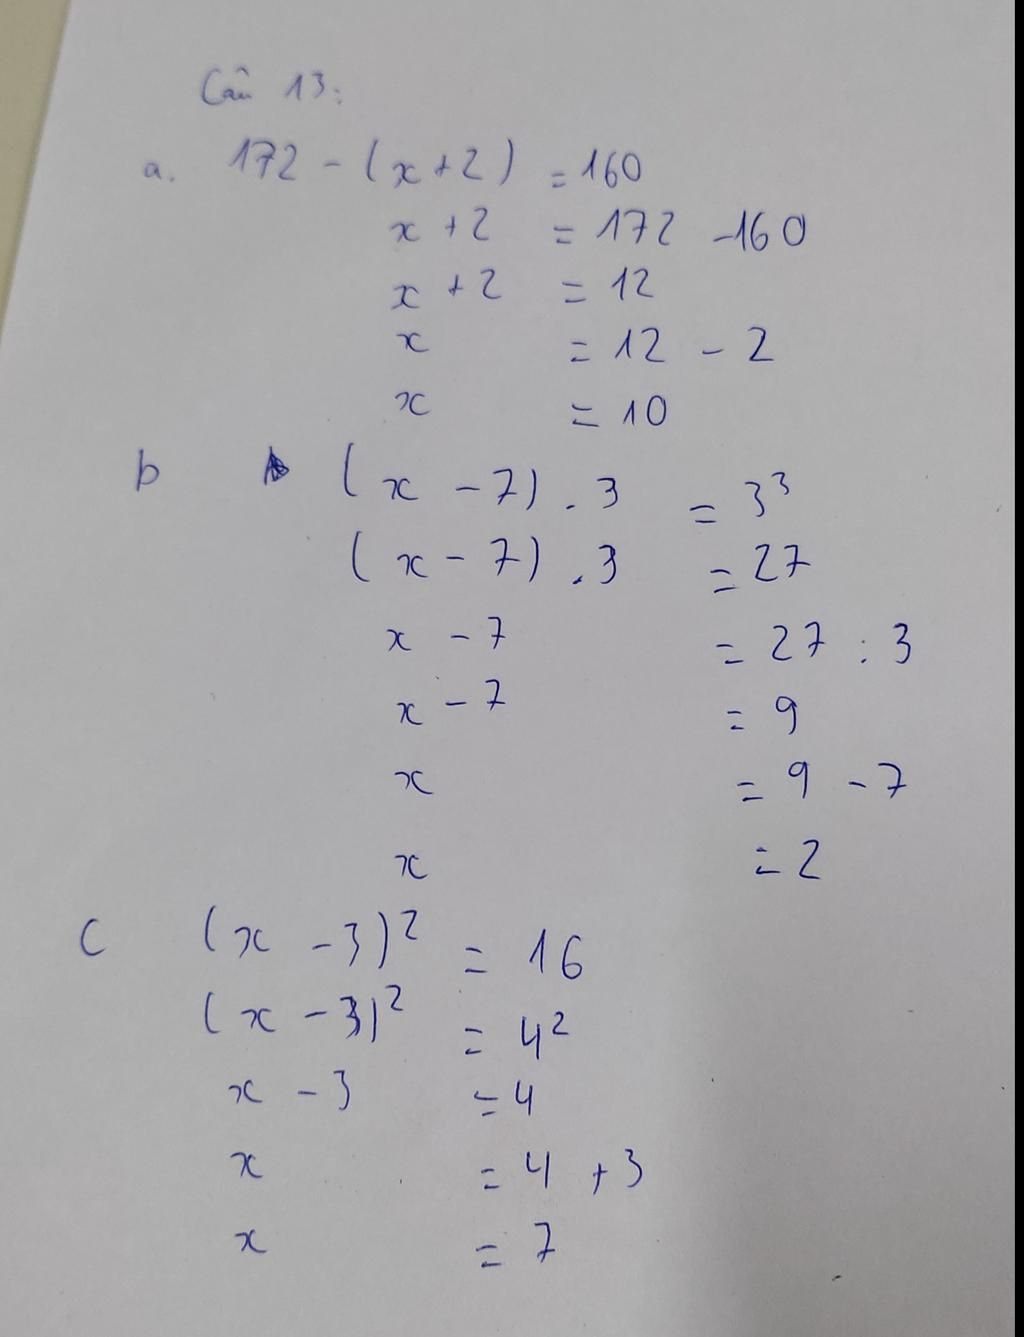 Câu 13:
a. 172 - (x + 2) = 160
x + 2 = 172 - 160
x + 2 = 12
x = 12 - 2
x = 10
b (x - 7) . 3 = 3³
(x - 7) . 3 = 27
x - 7 = 27 : 3
x - 7 = 9
x = 9 - 7
x = 2
c (x - 3)² = 16
(x - 3)² = 4²
x - 3 = 4
x = 4 + 3
x = 7